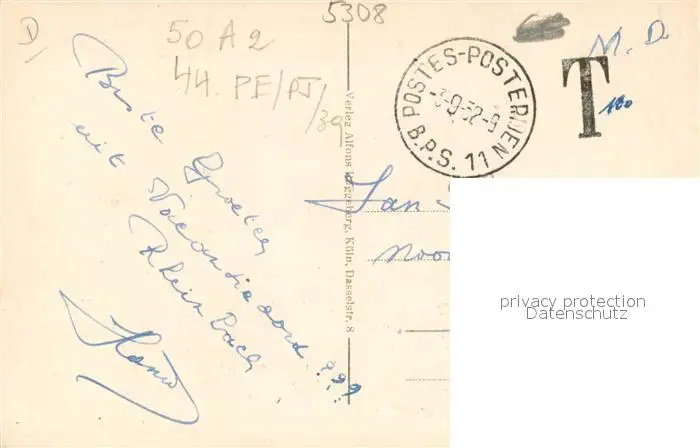 5308
D,
50 A 2
44. PE/PJ/39
M.D.
T
180
POSTES-POSTERIJEN
-3-9-52-9
B.P.S. 11
Beste Groeten
uit Vacantieoord
Rheinbach ???
Verlag Alfons Köln, Dasselstr. 8
Jan
Noo
privacy protection
Datenschutz